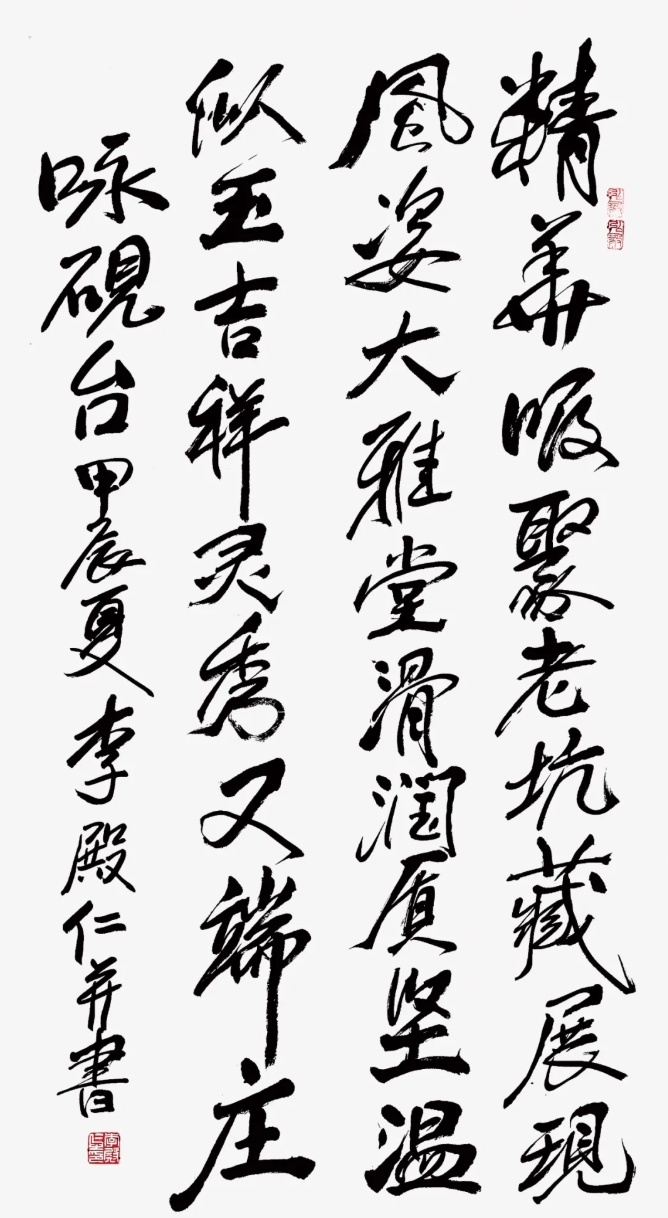 精華吸聚老坑藏展現
風姿大雅堂滑潤质坚温
似玉吉祥灵秀又端庄
咏硯台甲辰夏李殿仁并書